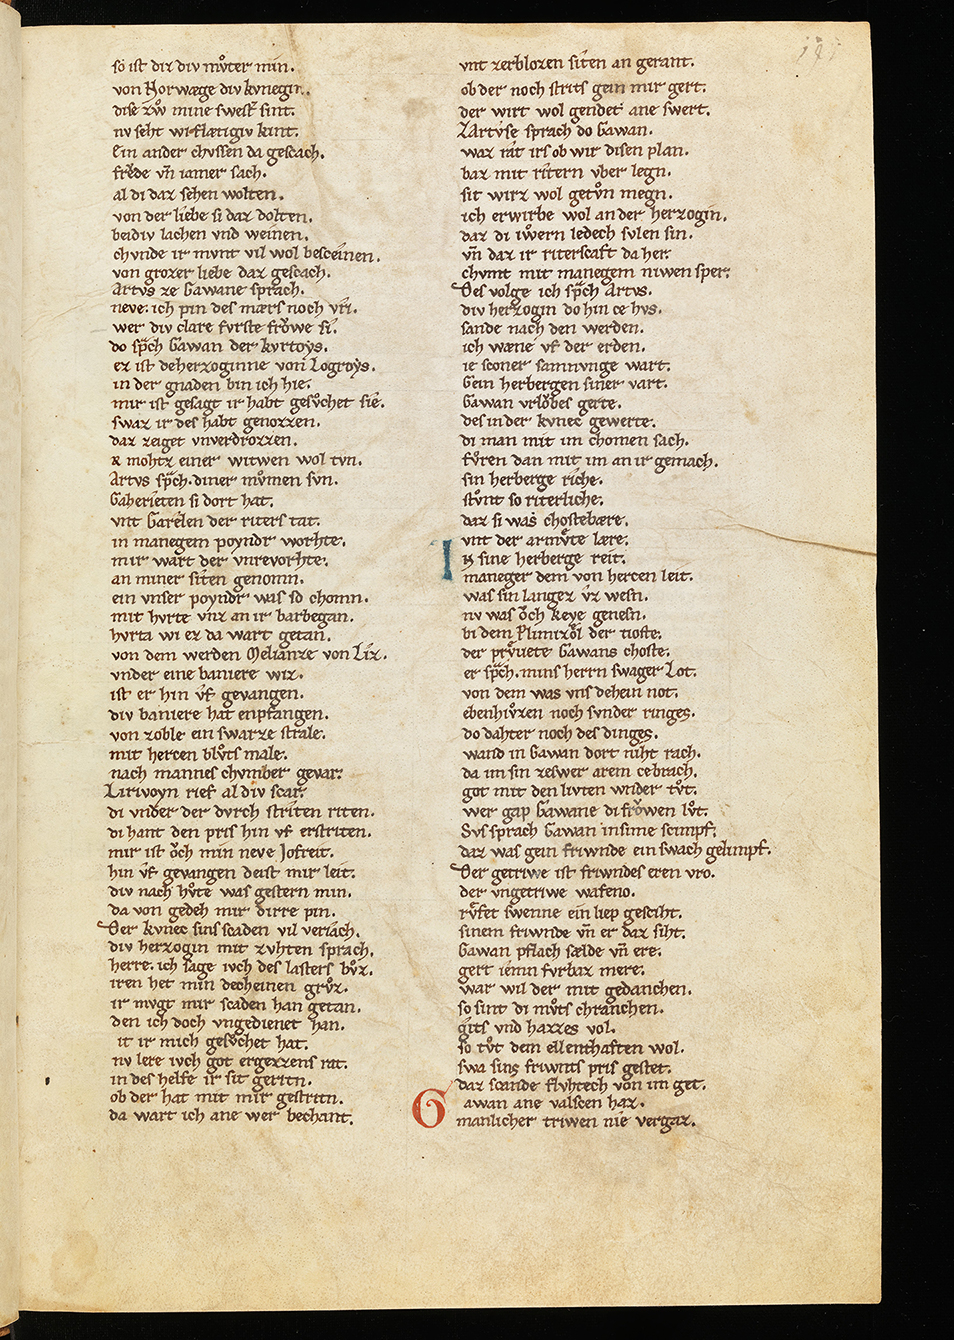 so ist diz div mvͦter min.
von Norwæge div kvnegin.
dise zwͦ mine swest̄ sint.
nv seht wi flætigiv kint.
Ein ander chvssen da gescach.
frͤde vn̄ iamer sach.
al di daz sehen wolten.
von der liebe si daz dolten.
beidiv lachen vnd weinen.
chvnde ir mvnt vil wol besceinen.
von grozer liebe daz gescach.
Artvs ze Gawane sprach.
neve. ich pin des mærs noch vri.
wer div clare fvrste frowe si.
do sp̄ch Gawan der kvrtoys.
ez ist deherzoginne von Logroys.
in der gnaden bin ich hie.
mir ist gesagt ir habt gesvͦchet sie.
swaz ir des habt genozzen.
daz zeiget vnverdrozzen.
mohtz einer witwen wol tvn.
Artvs sp̄ch. diner mvͦmen svn.
Gaherieten si dort hat.
vnt Garelen der riters tat.
in manegem poyndr worhte.
mir wart der vnrevorhte.
an miner siten genomn.
ein vnser poyndr was so chomn.
mit hvrte vnz an ir barbegan.
hvrta wi ez da wart getan.
von dem werden Melianze von Liz.
vnder eine baniere wiz.
ist er hin vͦf gevangen.
div baniere hat enpfangen.
von zoble ein swarze strale.
mit hercen blvͦts male.
nach mannes chvmber gevar.
Lirivoyn rief al div scar.
di vnder der dvrch striten riten.
di hant den pris hin vf erstriten.
mir ist oͮch min neve Jofreit.
hin vͦf gevangen deist mir leit.
div nach hvͦte was gestern min.
da von gedeh mir dirre pin.
Der kvnec sins scaden vil veriach.
div herzogin mit zvhten sprach.
herre. ich sage ivch des lasters bvͦz.
iren het min decheinen grvͦz.
ir mvgt mir scaden han getan.
den ich doch vngedienet han.
it ir mich gesvͦchet hat.
nv lere ivch got ergezzens rat.
in des helfe ir sit geritn.
ob der hat mit mir gestritn.
da wart ich ane wer bechant.
vnt zerblozen siten an gerant.
ob der noch strits gein mir gert.
der wirt wol gendet ane swert.
ZArtvse sprach do Gawan.
waz rat irs ob wir disen plan.
baz mit ritern vber legn.
sit wirz wol getvͦn megn.
ich erwirbe wol an der herzogin.
daz di iwͦern ledech svlen sin.
vn̄ daz ir riterscaft da her.
chvmt mit manegem niwen sper.
Des volge ich sp̄ch Artvs.
div herzogin do hin ce hvs.
sande nach den werden.
ich wæne vf der erden.
ie sconer samnvnge wart.
Gein herbergen siner vart.
Gawan vrloͮbes gerte.
des in der kvnec gewerte.
di man mit im chomen sach.
fvͦren dan mit im an ir gemach.
sin herberge riche.
stvͦnt so riterliche.
daz si was chostebære.
vnt der armvͦte lære.
In sine herberge reit.
maneger dem von hercen leit.
was sin langez vz wesn.
nv was oͮch keye genesn.
bi dem Plimizoͤl der tioste.
der prvͤuete Gawans choste.
er sp̄ch. mins herrn swager Lot.
von dem was vns dehein not.
ebenhivͦzen noch svnder ringes.
do dahter noch des dinges.
wand in Gawan dort niht rach.
da im sin zeswer arem cebrach.
got mit den livten wnder tvͦt.
wer gap Gawane di frowen lvͦt.
Svs sprach Gawan insime scimpf.
daz was gein friwnde ein swach gelimpf.
Der getriwe ist friwndes eren vro.
der vngetriwe wafeno.
rvͤfet swenne ein liep gesciht.
sinem friwnde vn̄ er daz siht.
Gawan pflach sælde vn̄ ere.
gert iemn fvrbaz mere.
war wil der mit gedanchen.
so sint di mvͦts chranchen.
gits vnd hazzes vol.
so tvͦt dem ellenthaften wol.
swa sins friwnts pris gestet.
daz scande flvhtech von im get.
Gawan ane valscen haz.
manlicher triwen nie vergaz.